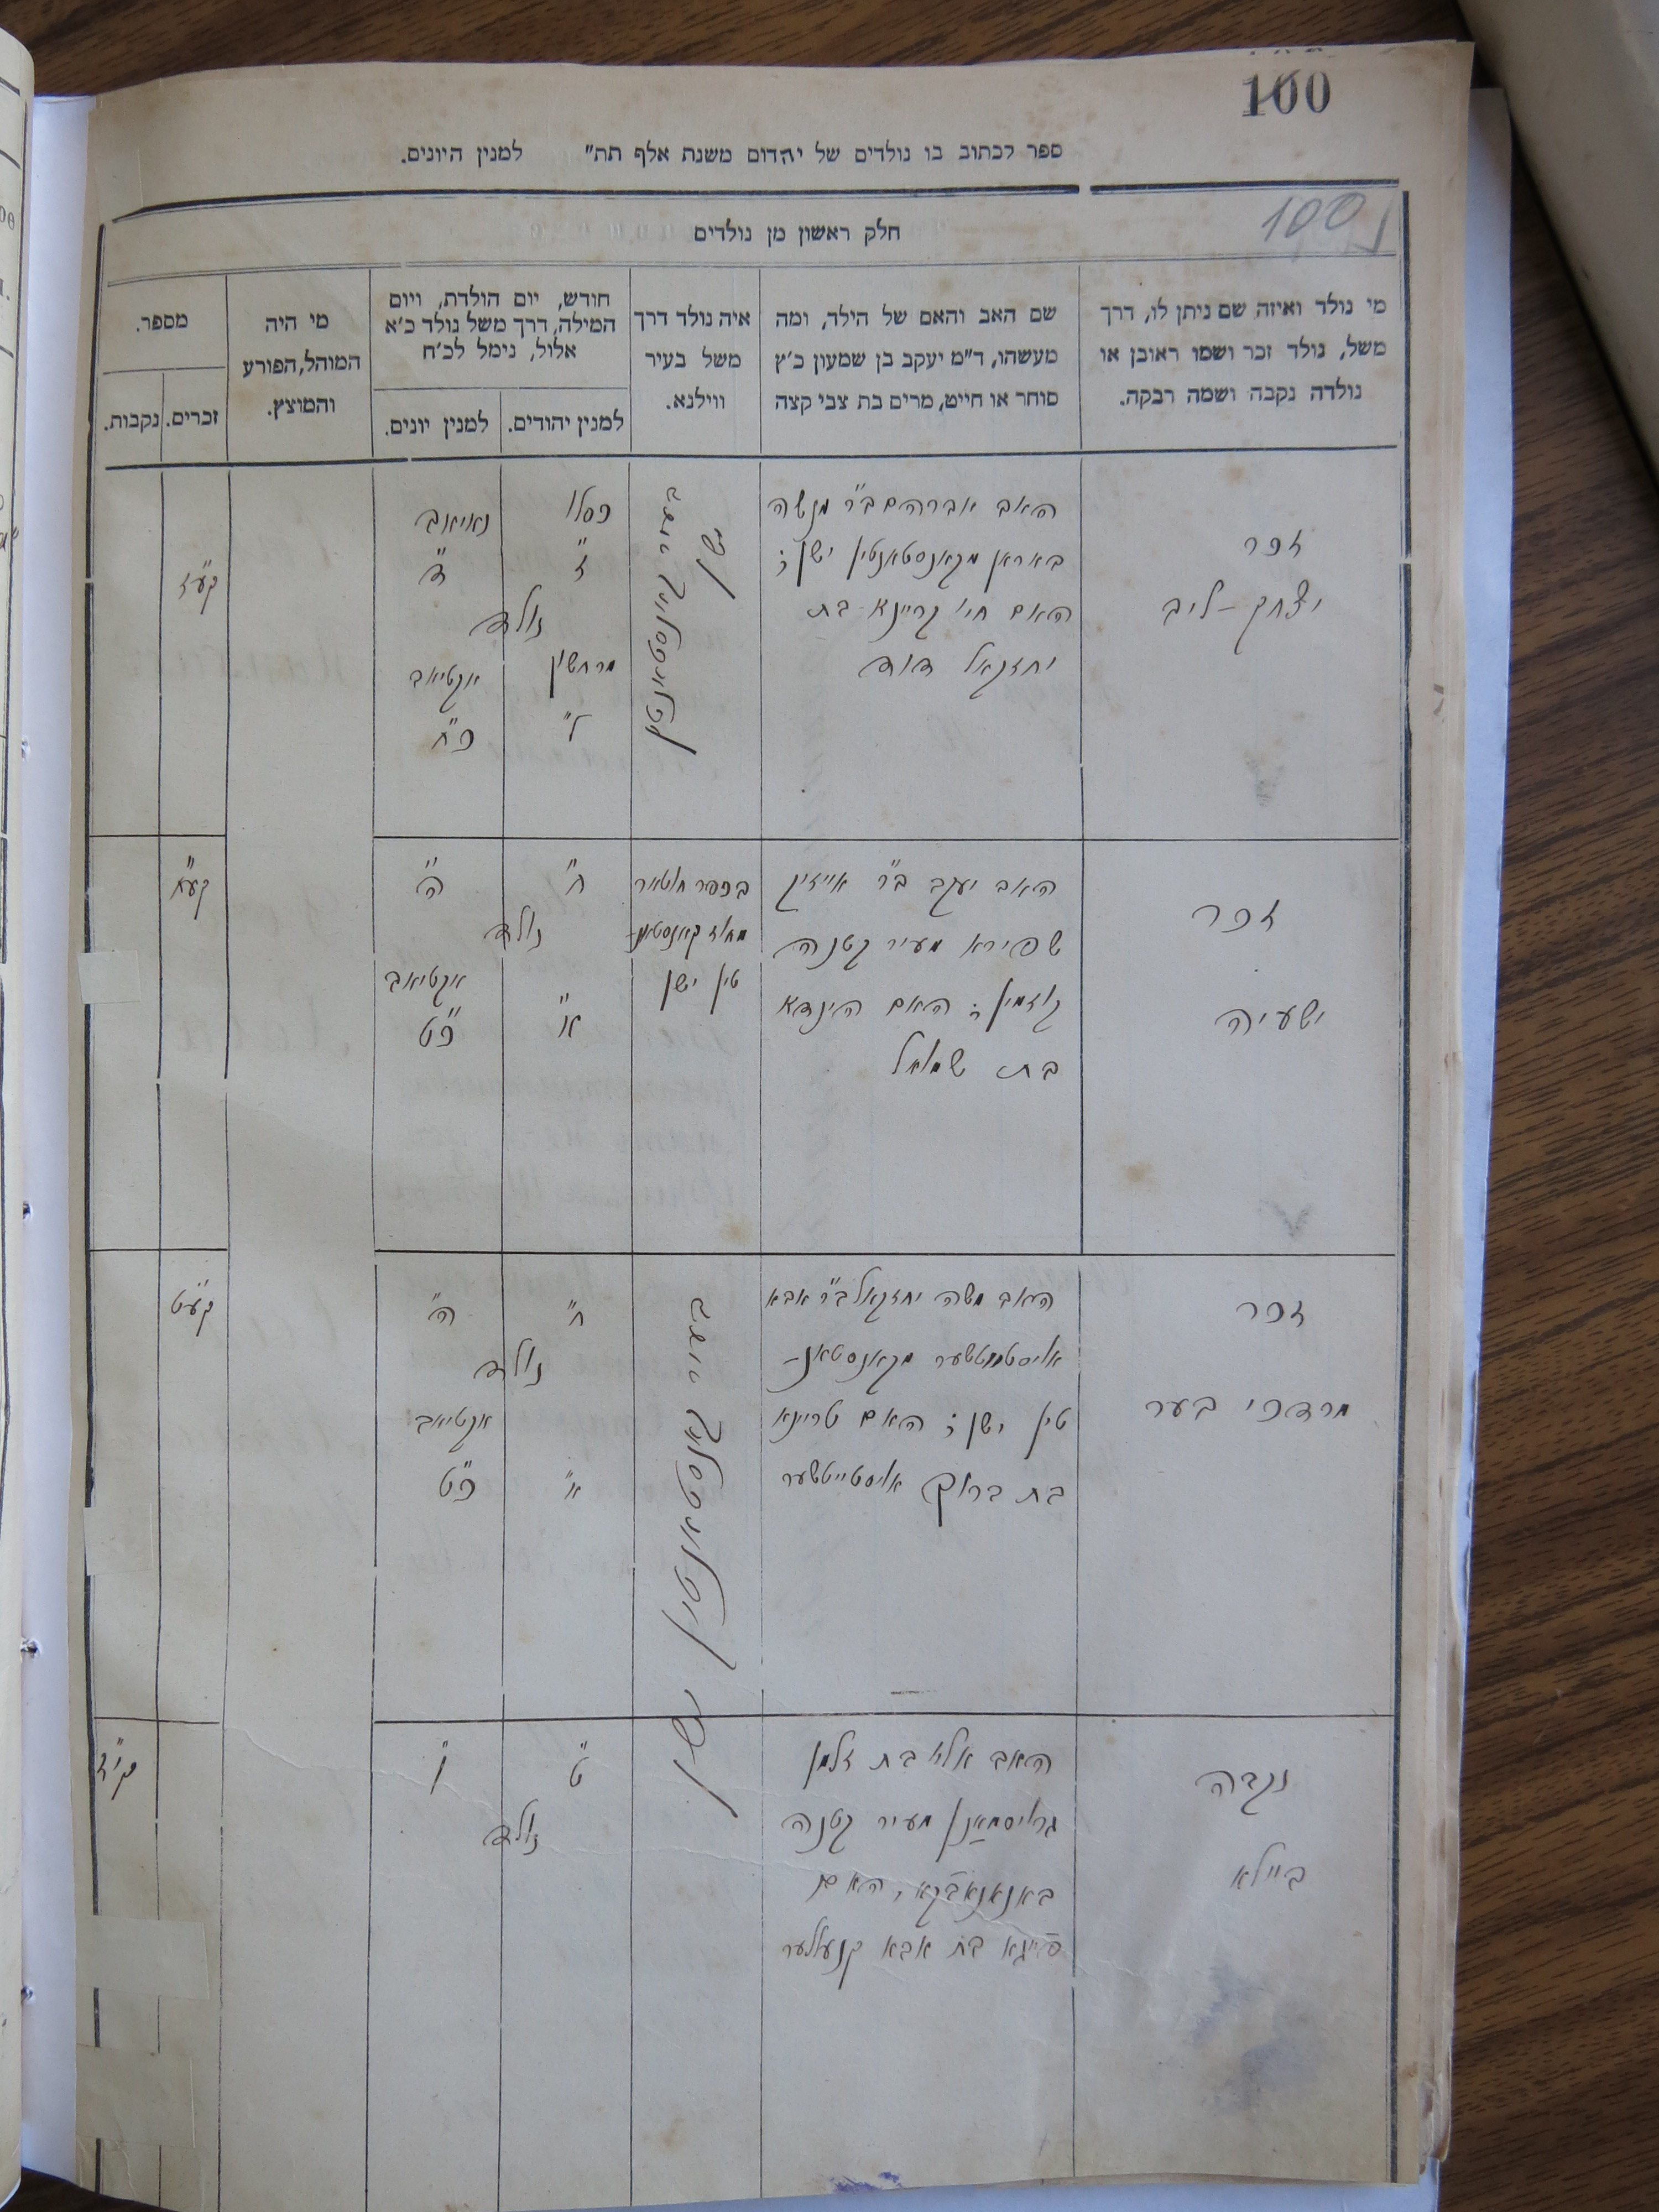 100
ספר לכתוב בו נולדים של יהדום משנת אלף תת" למנין היונים.
100
חלק ראשון מן נולדים
מי נולד ואיזה שם ניתן לו, דרך
משל, נולד זכר ושמו ראובן או
נולדה נקבה ושמה רבקה.
שם האב והאם של הילד, ומה
מעשהו, ד"מ יעקב בן שמעון כ'ץ
סוחר או חייט, מרים בת צבי קצה
איה נולד דרך
משל בעיר
ווילנא.
חודש, יום הולדת, ויום
המילה, דרך משל נולד כ'א
אלול, נימל לכ'ח
למנין יהודים.
למנין יונים.
מי היה
המוהל, הפורע
והמוצץ.
מספר.
זכרים.
נקבות.
זכר
יצחק-ליב
האב אברהם ב"ר מנשה
באראן מקאנסטאנטין ישן;
האם חיי קריינא בת
יחזקאל דוד
בעיר
ישן
כסלו
ז"
נאויאב
ד"
נולד
מרחשון
ל"
אקטיאב
כ"ח
קע"ז
זכר
ישעיה
האב יעקב ב"ר אייזיק
שפירא מעיר קטנה
קוזמין; האם הינדא
בת שמואל
בכפר חוטאר
מחוז קאנסטאנ-
טין ישן
ח"
ה"
נולד
אקטיאב
א"
כ"ט
קע"ח
זכר
מרדכי בער
האב משה יחזקאל ב"ר אבא
מקאנסטאנ-
טין ישן; האם טריינא
בת ברוך אוסטייטשער
בעיר קאנסטאנטין ישן
ח"
ה"
נולד
אקטיאב
א"
כ"ט
קע"ט
נקבה
ביילא
האב אלי' בת זלמן
גרויסמאן מעיר קטנה
האם
פייגא בת אבא קנעללער
ט"
ו"
נולד
קי"ז